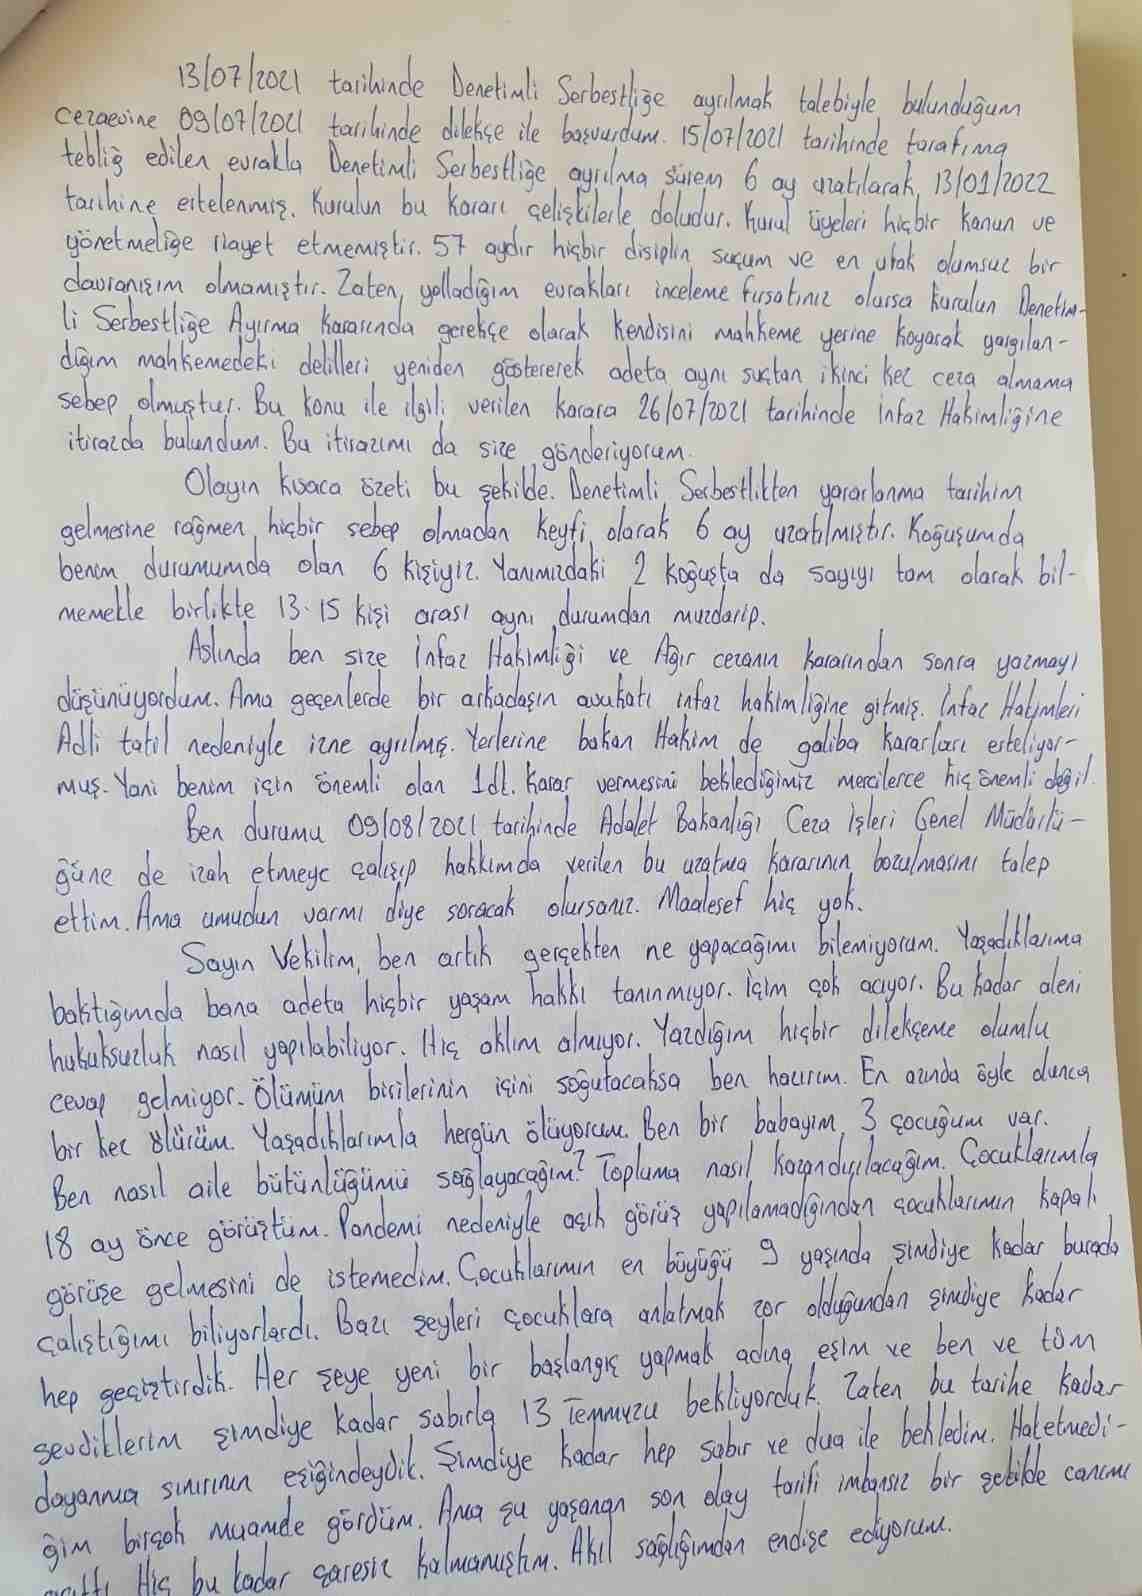 13/07/2021 tarihinde Denetimli Serbestliğe ayrılmak talebiyle bulunduğum
cezaevine 09/07/2021 tarihinde dilekçe ile başvurdum. 15/07/2021 tarihinde tarafıma
tebliğ edilen evrakla Denetimli Serbestliğe ayrılma sürem 6 ay uzatılarak, 13/01/2022
tarihine ertelenmiş. Kurulun bu kararı çelişkilerle doludur. Kurul üyeleri hiçbir kanun ve
yönetmeliğe riayet etmemiştir. 57 aydır hiçbir disiplin suçum ve en ufak olumsuz bir
davranışım olmamıştır. Zaten, yolladığım evrakları inceleme fırsatınız olursa kurulun Denetim-
li Serbestliğe Ayırma kararında gerekçe olarak kendisini mahkeme yerine koyarak yargılan-
dığım mahkemedeki delilleri yeniden göstererek adeta aynı suçtan ikinci kez ceza almama
sebep olmuştur. Bu konu ile ilgili verilen karara 26/07/2021 tarihinde İnfaz Hakimliğine
itirazda bulundum. Bu itirazımı da size gönderiyorum.
Olayın kısaca özeti bu şekilde. Denetimli Serbestlikten yararlanma tarihim
gelmesine rağmen, hiçbir sebep olmadan keyfi olarak 6 ay uzatılmıştır. Koğuşumda
benim durumumda olan 6 kişiyiz. Yanımızdaki 2 koğuşta da sayıyı tam olarak bil-
memekle birlikte 13-15 kişi arası aynı durumdan muzdarip.
Aslında ben size İnfaz Hakimliği ve Ağır cezanın kararından sonra yazmayı
düşünüyordum. Ama geçenlerde bir arkadaşın avukatı infaz hakimliğine gitmiş. İnfaz Hakimleri
Adli tatil nedeniyle izne ayrılmış. Yerlerine bakan Hakim de galiba kararları erteliyor-
muş. Yani benim için önemli olan 1dk. karar vermesini beklediğimiz mercilerce hiç önemli değil.
Ben durumu 09/08/2021 tarihinde Adalet Bakanlığı Ceza İşleri Genel Müdürlü-
ğüne de izah etmeye çalışıp hakkımda verilen bu uzatma kararının bozulmasını talep
ettim. Ama umudun varmı diye soracak olursanız. Maalesef hiç yok.
Sayın Vekilim, ben artık gerçekten ne yapacağımı bilemiyorum. Yaşadıklarıma
baktığımda bana adeta hiçbir yaşam hakkı tanınmıyor. İçim çok acıyor. Bu kadar aleni
hukuksuzluk nasıl yapılabiliyor. Hiç aklım almıyor. Yazdığım hiçbir dilekçeme olumlu
cevap gelmiyor. Ölümüm birilerinin içini soğutacaksa ben hazırım. En azında öyle olunca
bir kez ölürüm. Yaşadıklarımla hergün ölüyorum. Ben bir babayım, 3 çocuğum var.
Ben nasıl aile bütünlüğümü sağlayacağım? Topluma nasıl kazandırılacağım. Çocuklarımla
18 ay önce görüştüm. Pandemi nedeniyle açık görüş yapılamadığından çocuklarımın kapalı
görüşe gelmesini de istemedim. Çocuklarımın en büyüğü 9 yaşında şimdiye kadar burada
çalıştığımı biliyorlardı. Bazı şeyleri çocuklara anlatmak zor olduğundan şimdiye kadar
hep geçiştirdik. Her şeye yeni bir başlangıç yapmak adına eşim ve ben ve tüm
sevdiklerim şimdiye kadar sabırla 13 Temmuzu bekliyorduk. Zaten bu tarihe kadar
dayanma sınırının eşiğindeydik. Şimdiye kadar hep sabır ve dua ile bekledim. Haketmedi-
ğim birçok muamele gördüm. Ama şu yaşanan son olay tarifi imkansız bir şekilde canımı
Hiç bu kadar çaresiz kalmamıştım. Akıl sağlığımdan endişe ediyorum.